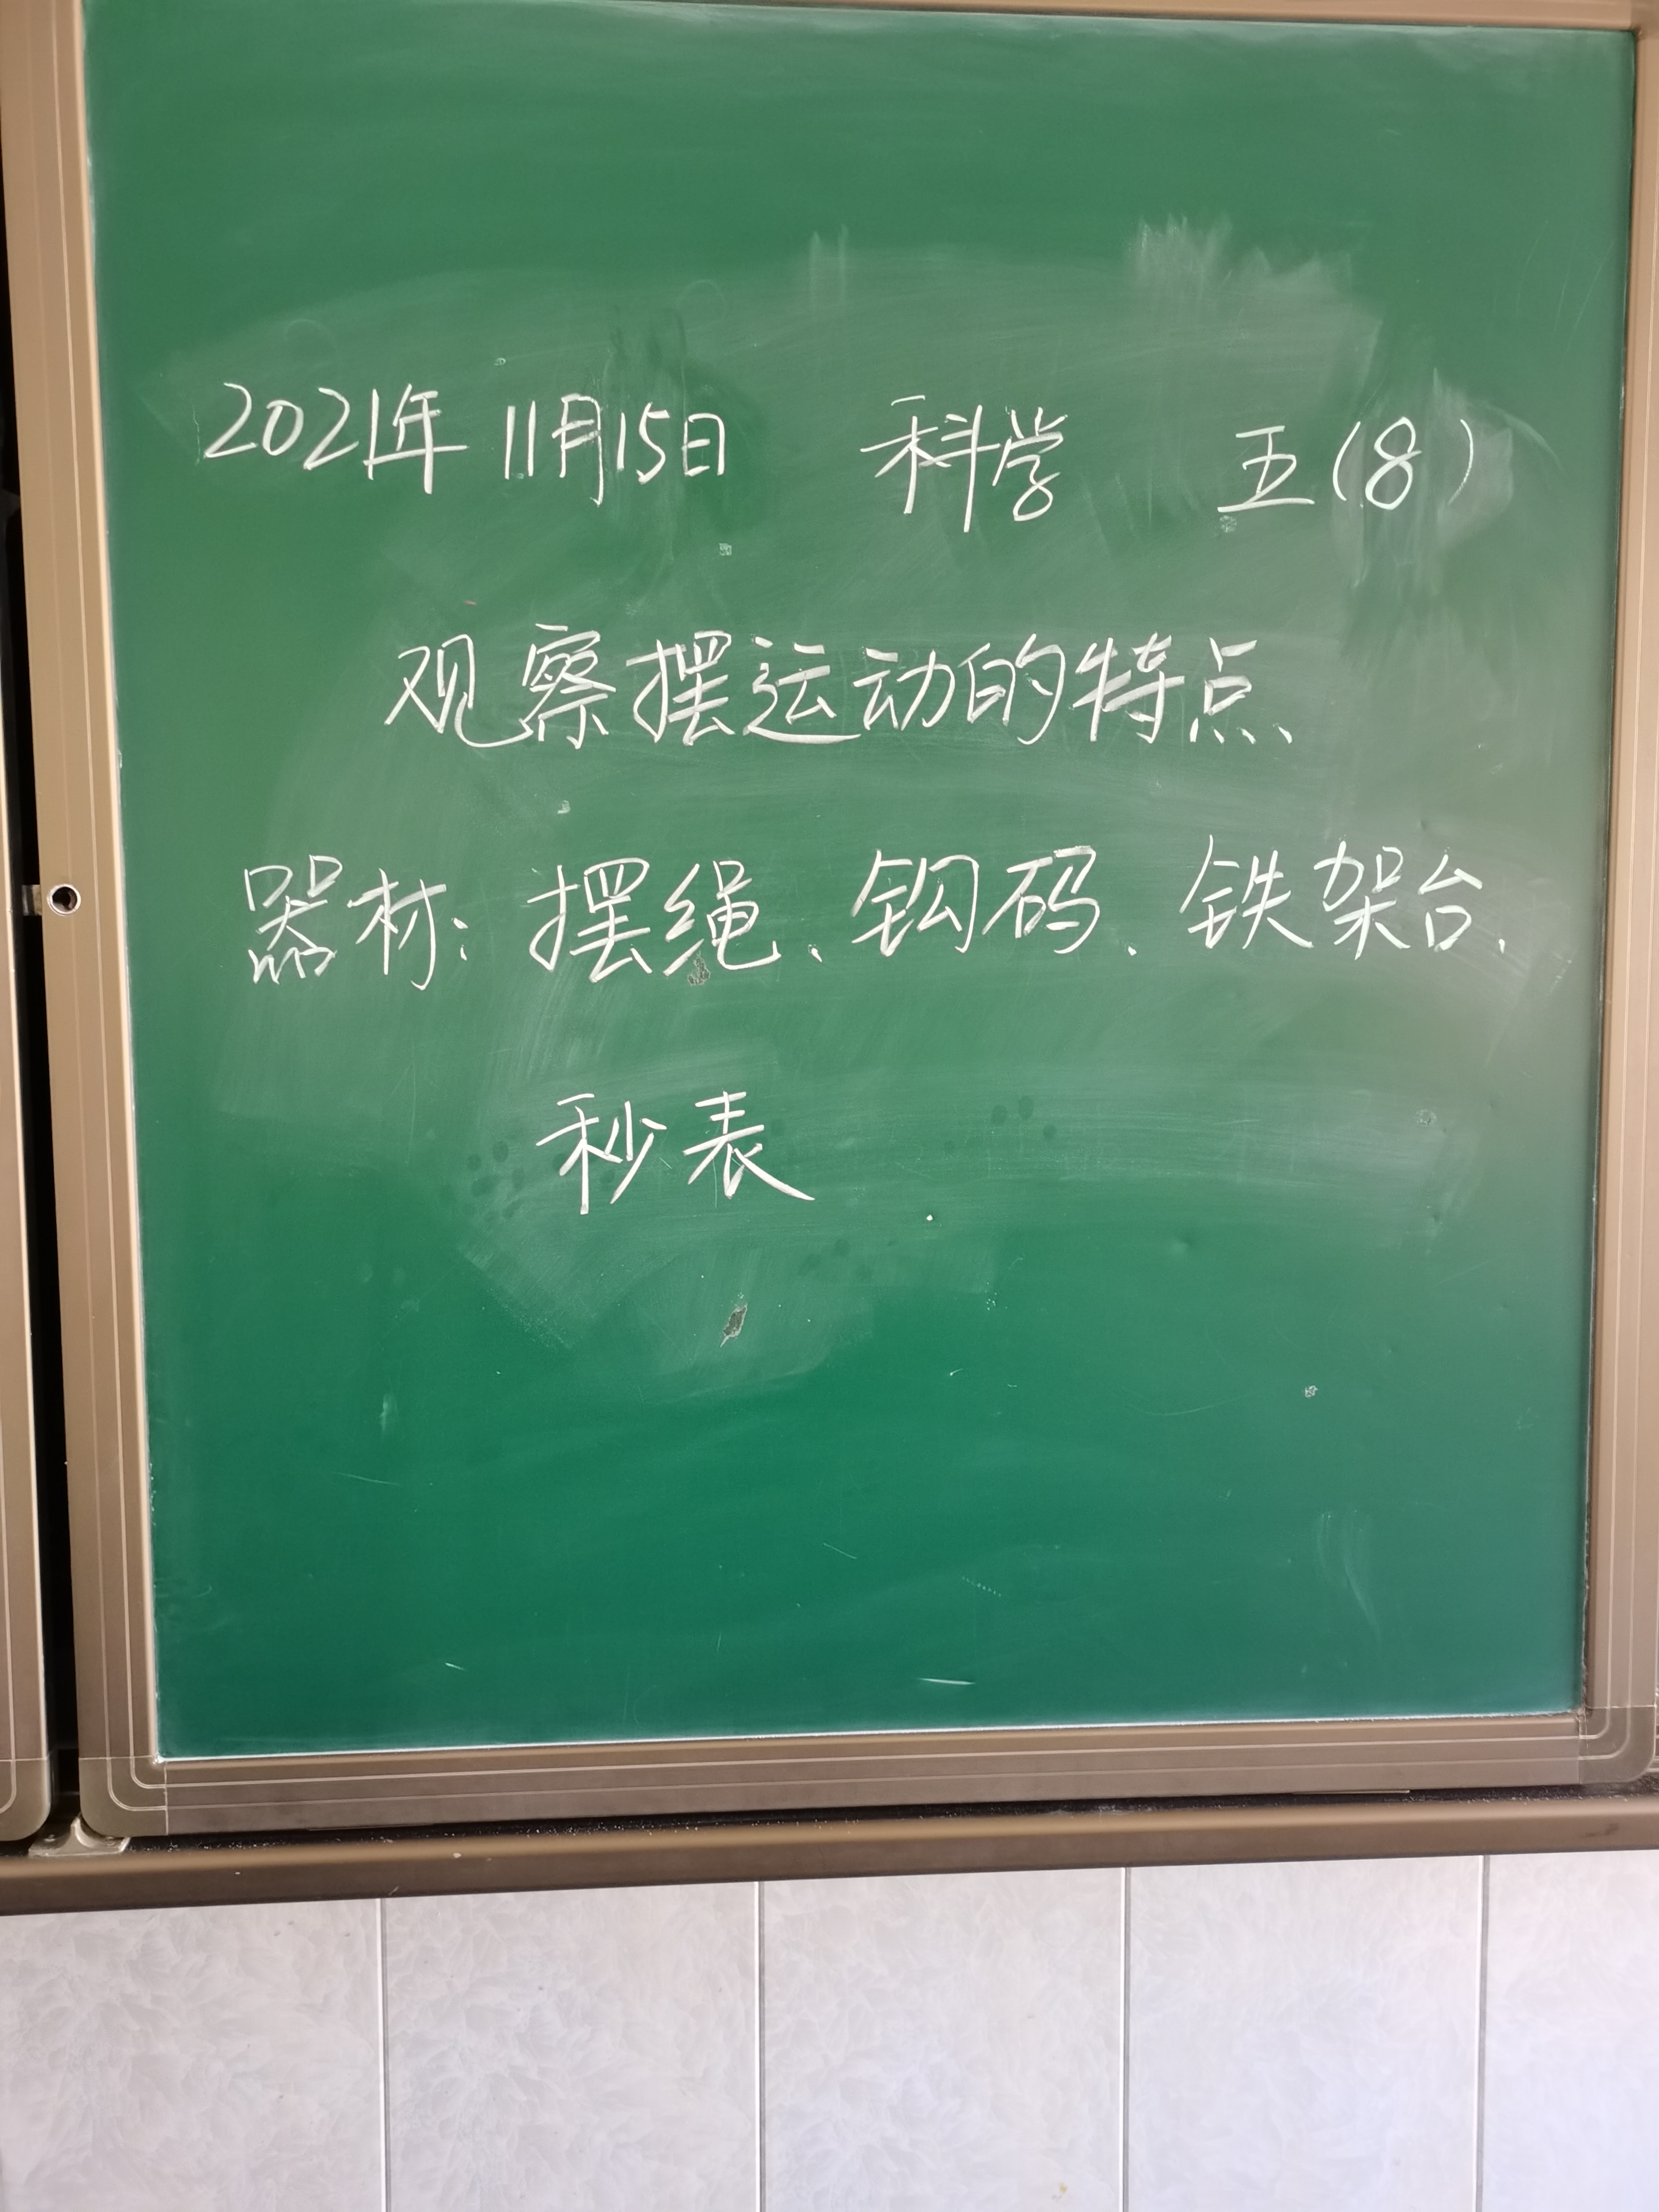 2021年 11月15日 科学 五(8)
观察摆运动的特点
器材:摆绳、钩码、铁架台、
秒表